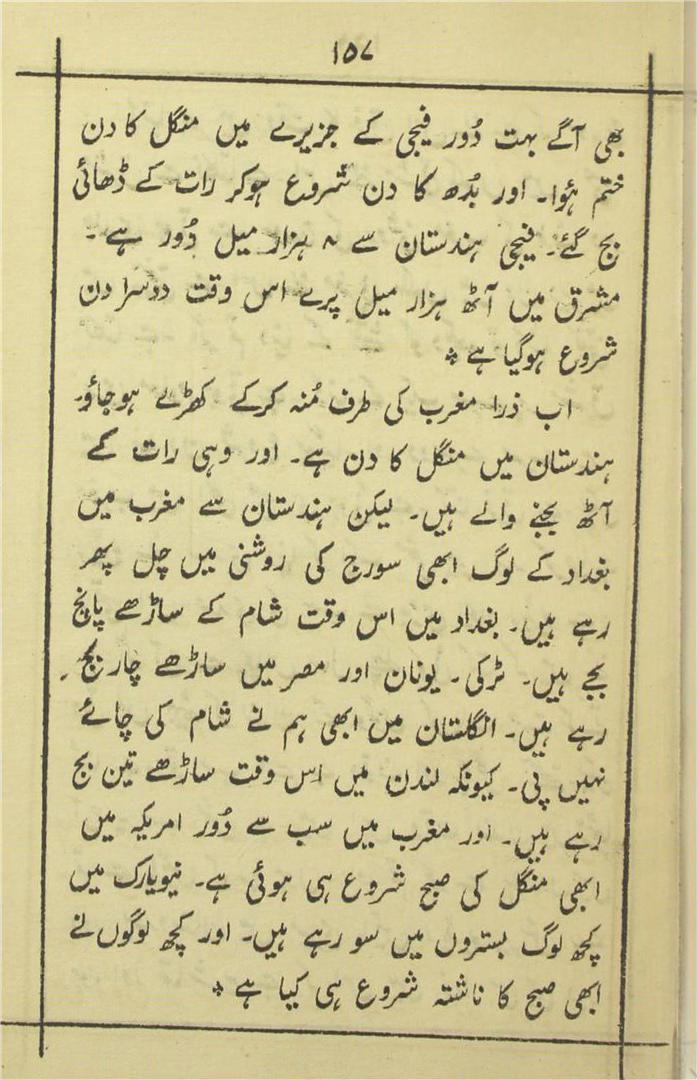 ۱۵۷
بھی آگے بہت دُور فیجی کے جزیرے میں منگل کا دن
ختم ہُوا۔ اور بُدھ کا دن شروع ہوکر رات کے ڈھائی
بج گئے۔ فیجی ہندستان سے ۸ ہزار میل دُور ہے۔
مشرق میں آٹھ ہزار میل پرے اس وقت دوسرا دن
شروع ہوگیا ہے *
اب ذرا مغرب کی طرف مُنہ کرکے کھڑے ہوجاؤ۔
ہندستان میں منگل کا دن ہے۔ اور وہی رات کے
آٹھ بجنے والے ہیں۔ لیکن ہندستان سے مغرب میں
بغداد کے لوگ ابھی سورج کی روشنی میں چل پھر
رہے ہیں۔ بغداد میں اس وقت شام کے ساڑھے پانچ
بجے ہیں۔ ٹرکی۔ یونان اور مصر میں ساڑھے چار بج
رہے ہیں۔ انگلستان میں ابھی ہم نے شام کی چائے
نہیں پی۔ کیونکہ لندن میں اس وقت ساڑھے تین بج
رہے ہیں۔ اور مغرب میں سب سے دُور امریکہ میں
ابھی منگل کی صبح شروع ہی ہوئی ہے۔ نیویارک میں
کچھ لوگ بستروں میں سو رہے ہیں۔ اور کچھ لوگوں نے
ابھی صبح کا ناشتہ شروع ہی کیا ہے *